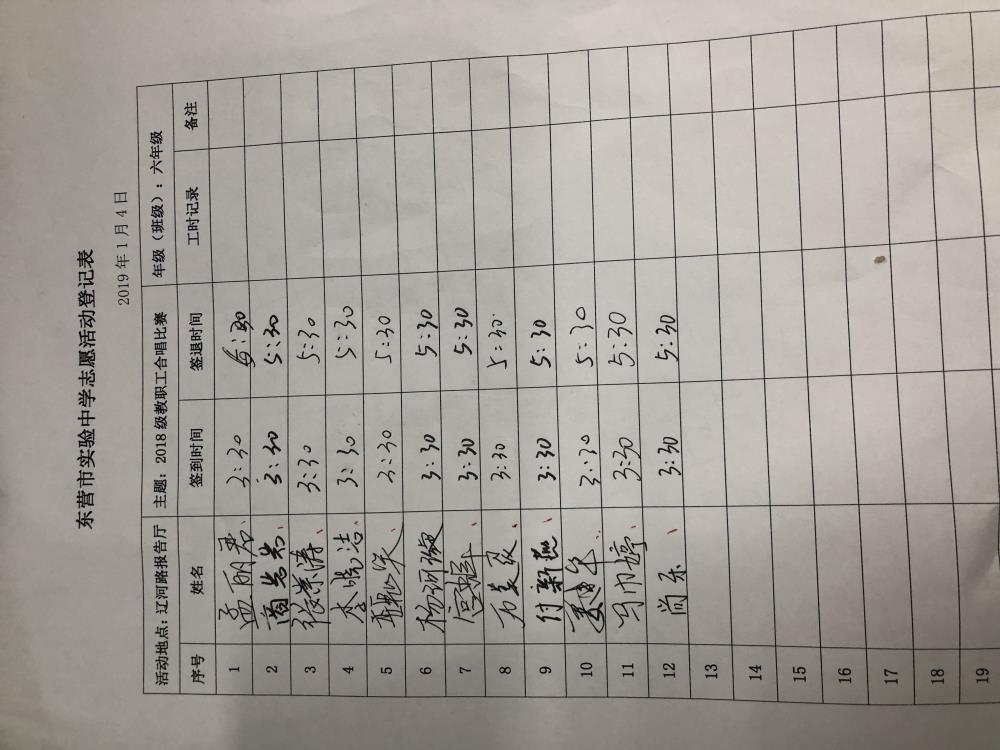 东营市实验中学志愿活动登记表
2019年1月4日
活动地点：辽河路报告厅 主题：2018级教职工合唱比赛 年级（班级）：六年级
序号 姓名 签到时间 签退时间 工时记录 备注
1 孟丽君 3:30 5:30
2 商岩岩 3:30 5:30
3 张崇涛 3:30 5:30
4 李晓洁 3:30 5:30
5 3:30 5:30
6 3:30 5:30
7 3:30 5:30
8 3:30 5:30
9 付新燕 3:30 5:30
10 3:30 5:30
11 马巾婷 3:30 5:30
12 尚乐 3:30 5:30
13
14
15
16
17
18
19